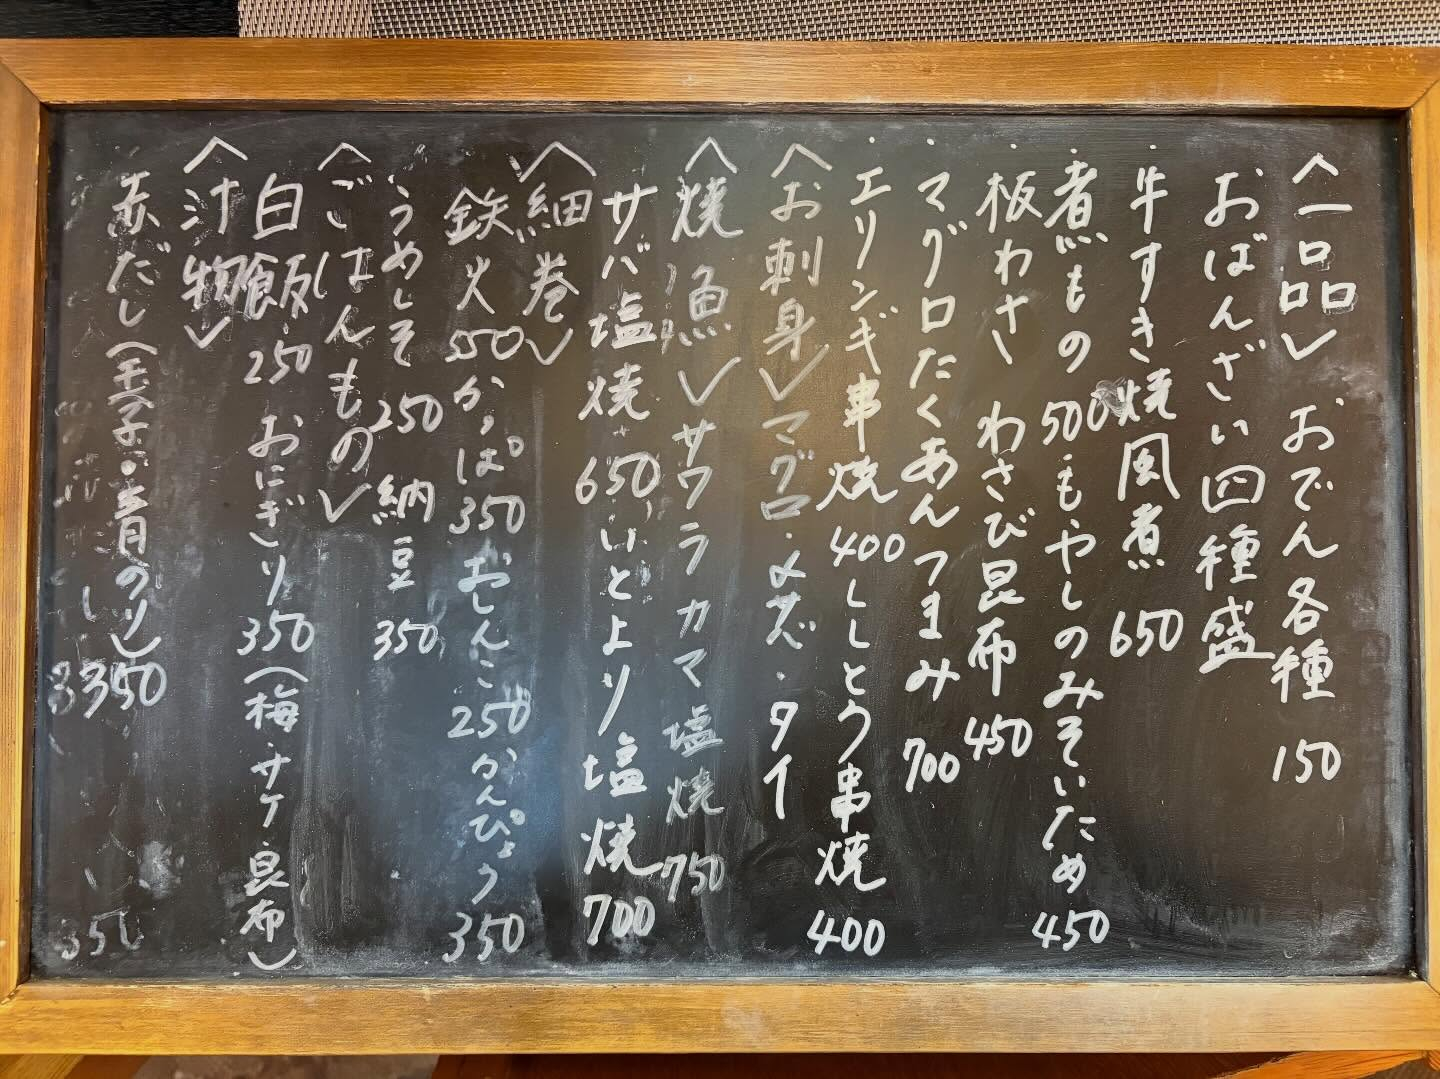 〈一品〉 おでん各種 150
おばんざい四種盛
牛すき焼風煮 650
煮もの 500・もやしのみそいため 450
板わさ わさび昆布 450
マグロたくあんつまみ 700
エリンギ串焼 400 ししとう串焼 400
〈お刺身〉マグロ・〆サバ・タイ
〈焼魚〉サワラカマ塩焼 750
サバ塩焼 650 いとより塩焼 700
〈細巻〉
鉄火 550 かっぱ 350 おしんこ 250 かんぴょう 350
うめしそ 250 納豆 350
〈ごはんもの〉
白飯・250 おにぎり 350(梅・サケ・昆布)
〈汁物〉
赤だし(玉子・青のり) 350
350